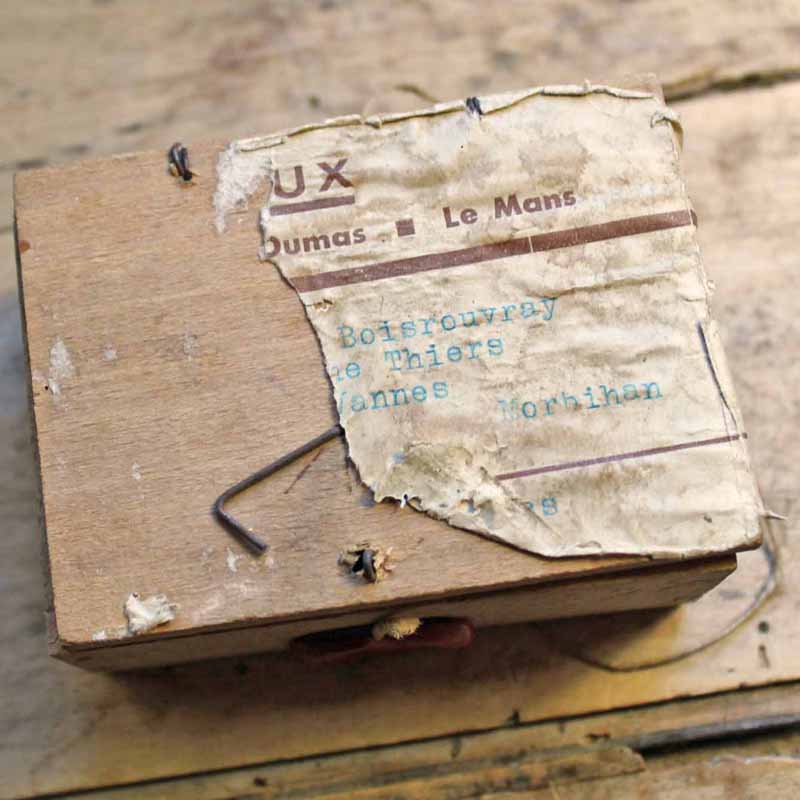 UX
Dumas ■ Le Mans
Boisrouvray
e Thiers
Vannes Morbihan
s